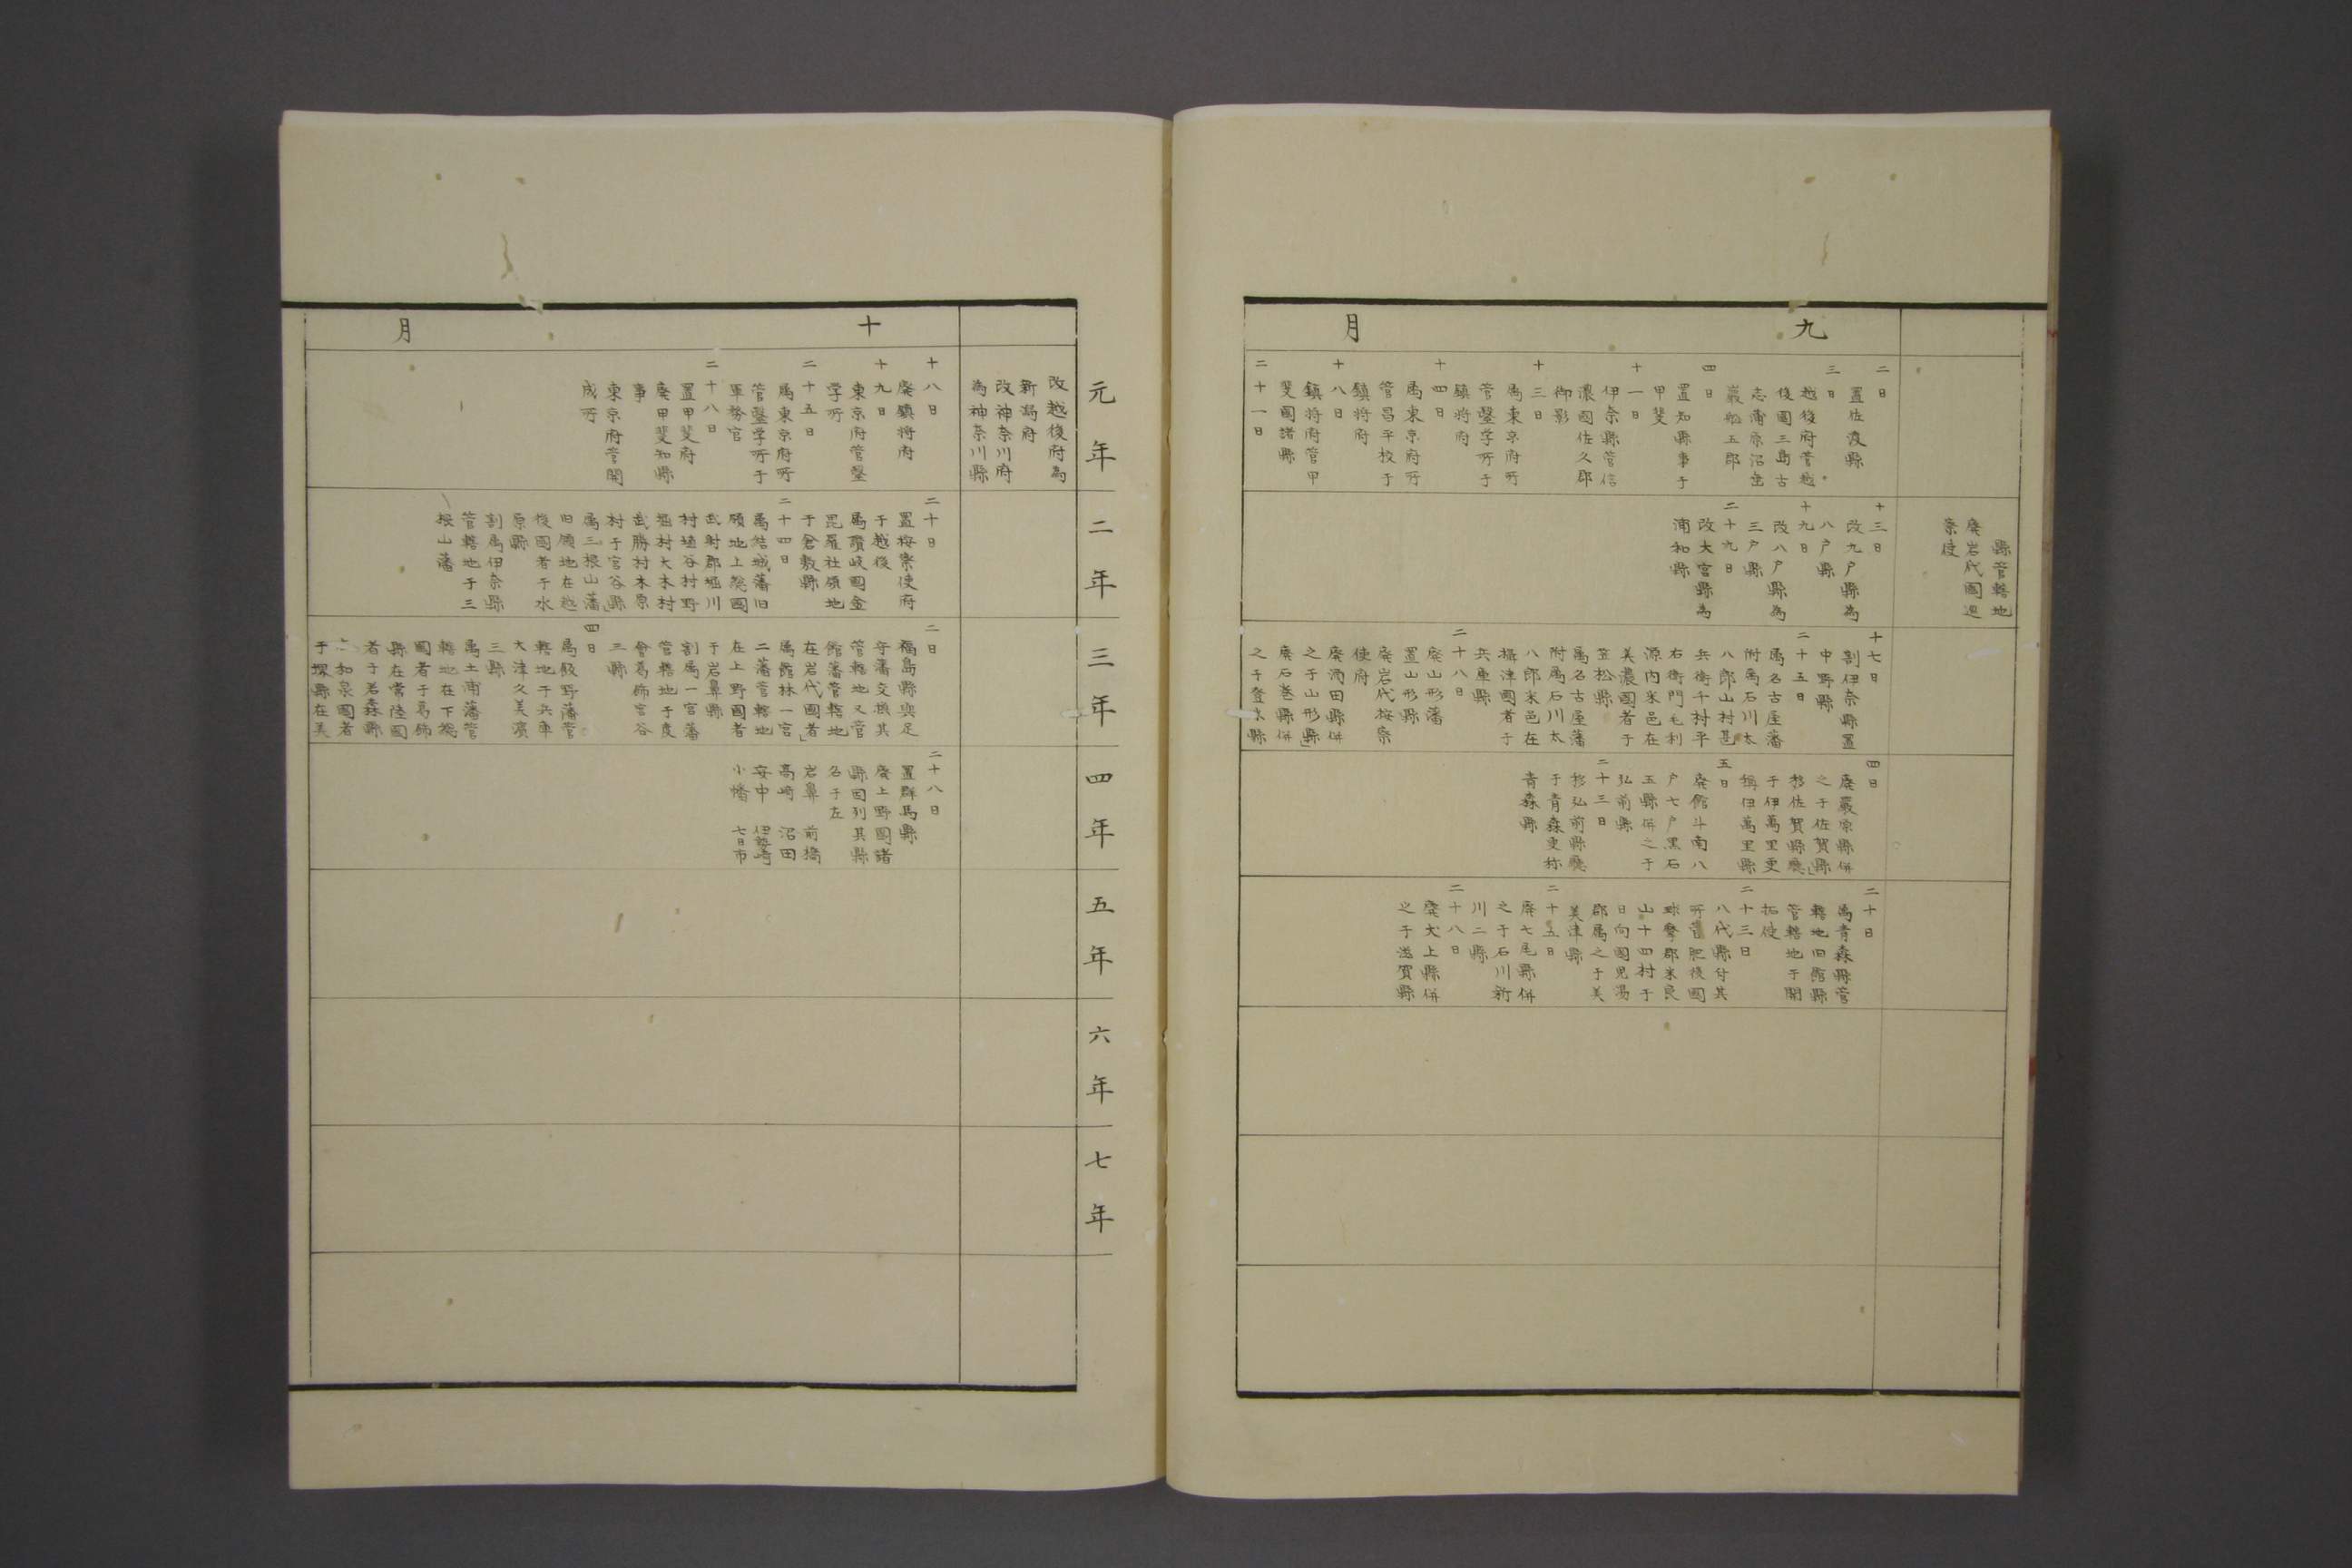 縣管轄地
廢岩代國巡
察使
九
月
二日
置佐渡縣
三日
越後府管越
後國三島古
志蒲原沼垂
巖船五郡
四日
置知縣事于
甲斐
十一日
伊奈縣管信
濃國佐久郡
御影
十三日
属東京府所
管醫学所于
鎮将府
十四日
属東京府所
管昌平校于
鎮将府
十八日
鎮将府管甲
斐國諸縣
二十一日
十三日
改九戸縣為
八戸縣
十九日
改八戸縣為
三戸縣
二十九日
改大宮縣為
浦和縣
十七日
割伊奈縣置
中野縣
二十五日
属名古屋藩
附属石川太
八郎山村甚
兵衛千村平
右衛門毛利
源内釆邑在
美濃國者于
笠松縣
属名古屋藩
附属石川太
八郎釆邑在
攝津國者于
兵庫縣
二十八日
廢山形藩
置山形縣
廢岩代按察
使府
廢酒田縣併
之于山形縣」
廢石巻縣併
之于登米縣
四日
廢嚴原縣併
之于佐賀縣」
移佐賀縣廳
于伊萬里更
稱伊萬里縣
五日
廢館斗南八
戸七戸黒石
五縣併之于
弘前縣
二十三日
移弘前縣廳
于青森更称
青森縣
二十日
属青森縣管
轄地旧館縣
管轄地于開
拓使
二十三日
八代縣分其
所管肥後國
球摩郡米良
山十四村于
日向國児湯
郡属之于美
美津縣
二十五日
廢七尾縣併
之于石川新
川二縣
二十八日
廢犬上縣併
之于滋賀縣
元年
二年
三年
四年
五年
六年
七年
改越後府為
新潟府
改神奈川府
為神奈川縣
十
月
十八日
廢鎮将府
十九日
東京府管醫
学所
二十五日
属東京府所
管醫学所于
軍務官
二十八日
置甲斐府
廢甲斐知縣
事
東京府管開
成所
二十日
置按察使府
于越後
属讃岐國金
毘羅社領地
于倉敷縣
二十四日
属結城藩旧
領地上総國
武射郡堀川
村埴谷村野
堀村大木村
武勝村木原
村于宮谷縣」
属三根山藩
旧領地在越
後國者于水
原縣
割属伊奈縣
管轄地于三
根山藩
二日
福島縣與足
守藩交換其
管轄地又管
館藩管轄地
在岩代國者」
属館林一宮
二藩管轄地
在上野國者
于岩鼻縣
割属一宮藩
管轄地于度
會葛飾宮谷
三縣
四日
属飯野藩管
轄地于兵庫
大津久美濱
三縣
属土浦藩管
轄地在下総
國者于葛飾
縣在常陸國
者于若森縣
和泉國者
于堺縣在美
二十八日
置群馬縣
廢上野國諸
縣因列其縣
名于左
岩鼻 前橋
高崎 沼田
安中 伊勢崎
小幡 七日市